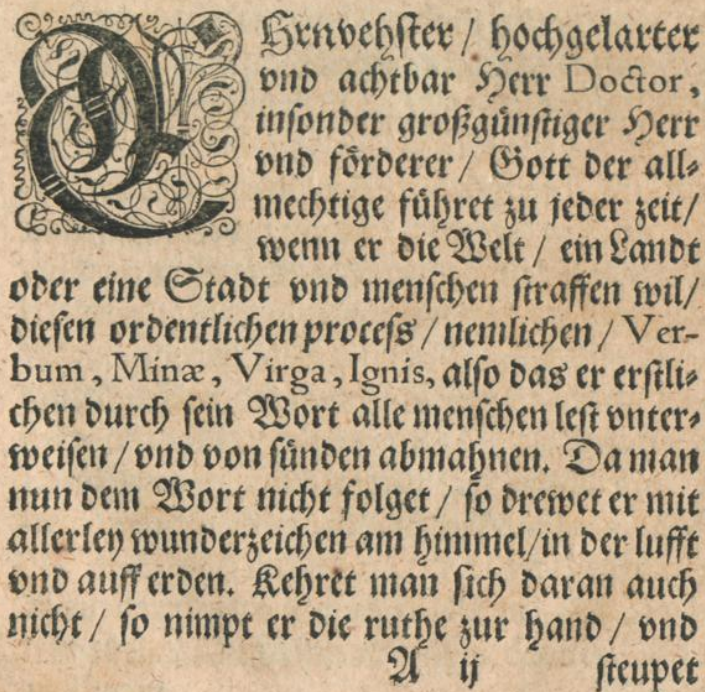 EHrnvehster / hochgelarter
vnd achtbar Herr Doctor,
insonder großgünstiger Herr
vnd förderer / Gott der all⸗
mechtige führet zu jeder zeit/
wenn er die Welt / ein Landt
oder eine Stadt vnd menschen straffen wil/
diesen ordentlichen process / nemlichen / Ver-
bum, Minæ, Virga, Ignis, also das er erstli⸗
chen durch sein Wort alle menschen lest vnter⸗
weisen / vnd von sünden abmahnen. Da man
nun dem Wort nicht folget / so drewet er mit
allerley wunderzeichen am himmel/in der lufft
vnd auff erden. Kehret man sich daran auch
nicht / so nimpt er die ruthe zur hand / vnd
A ij steupet